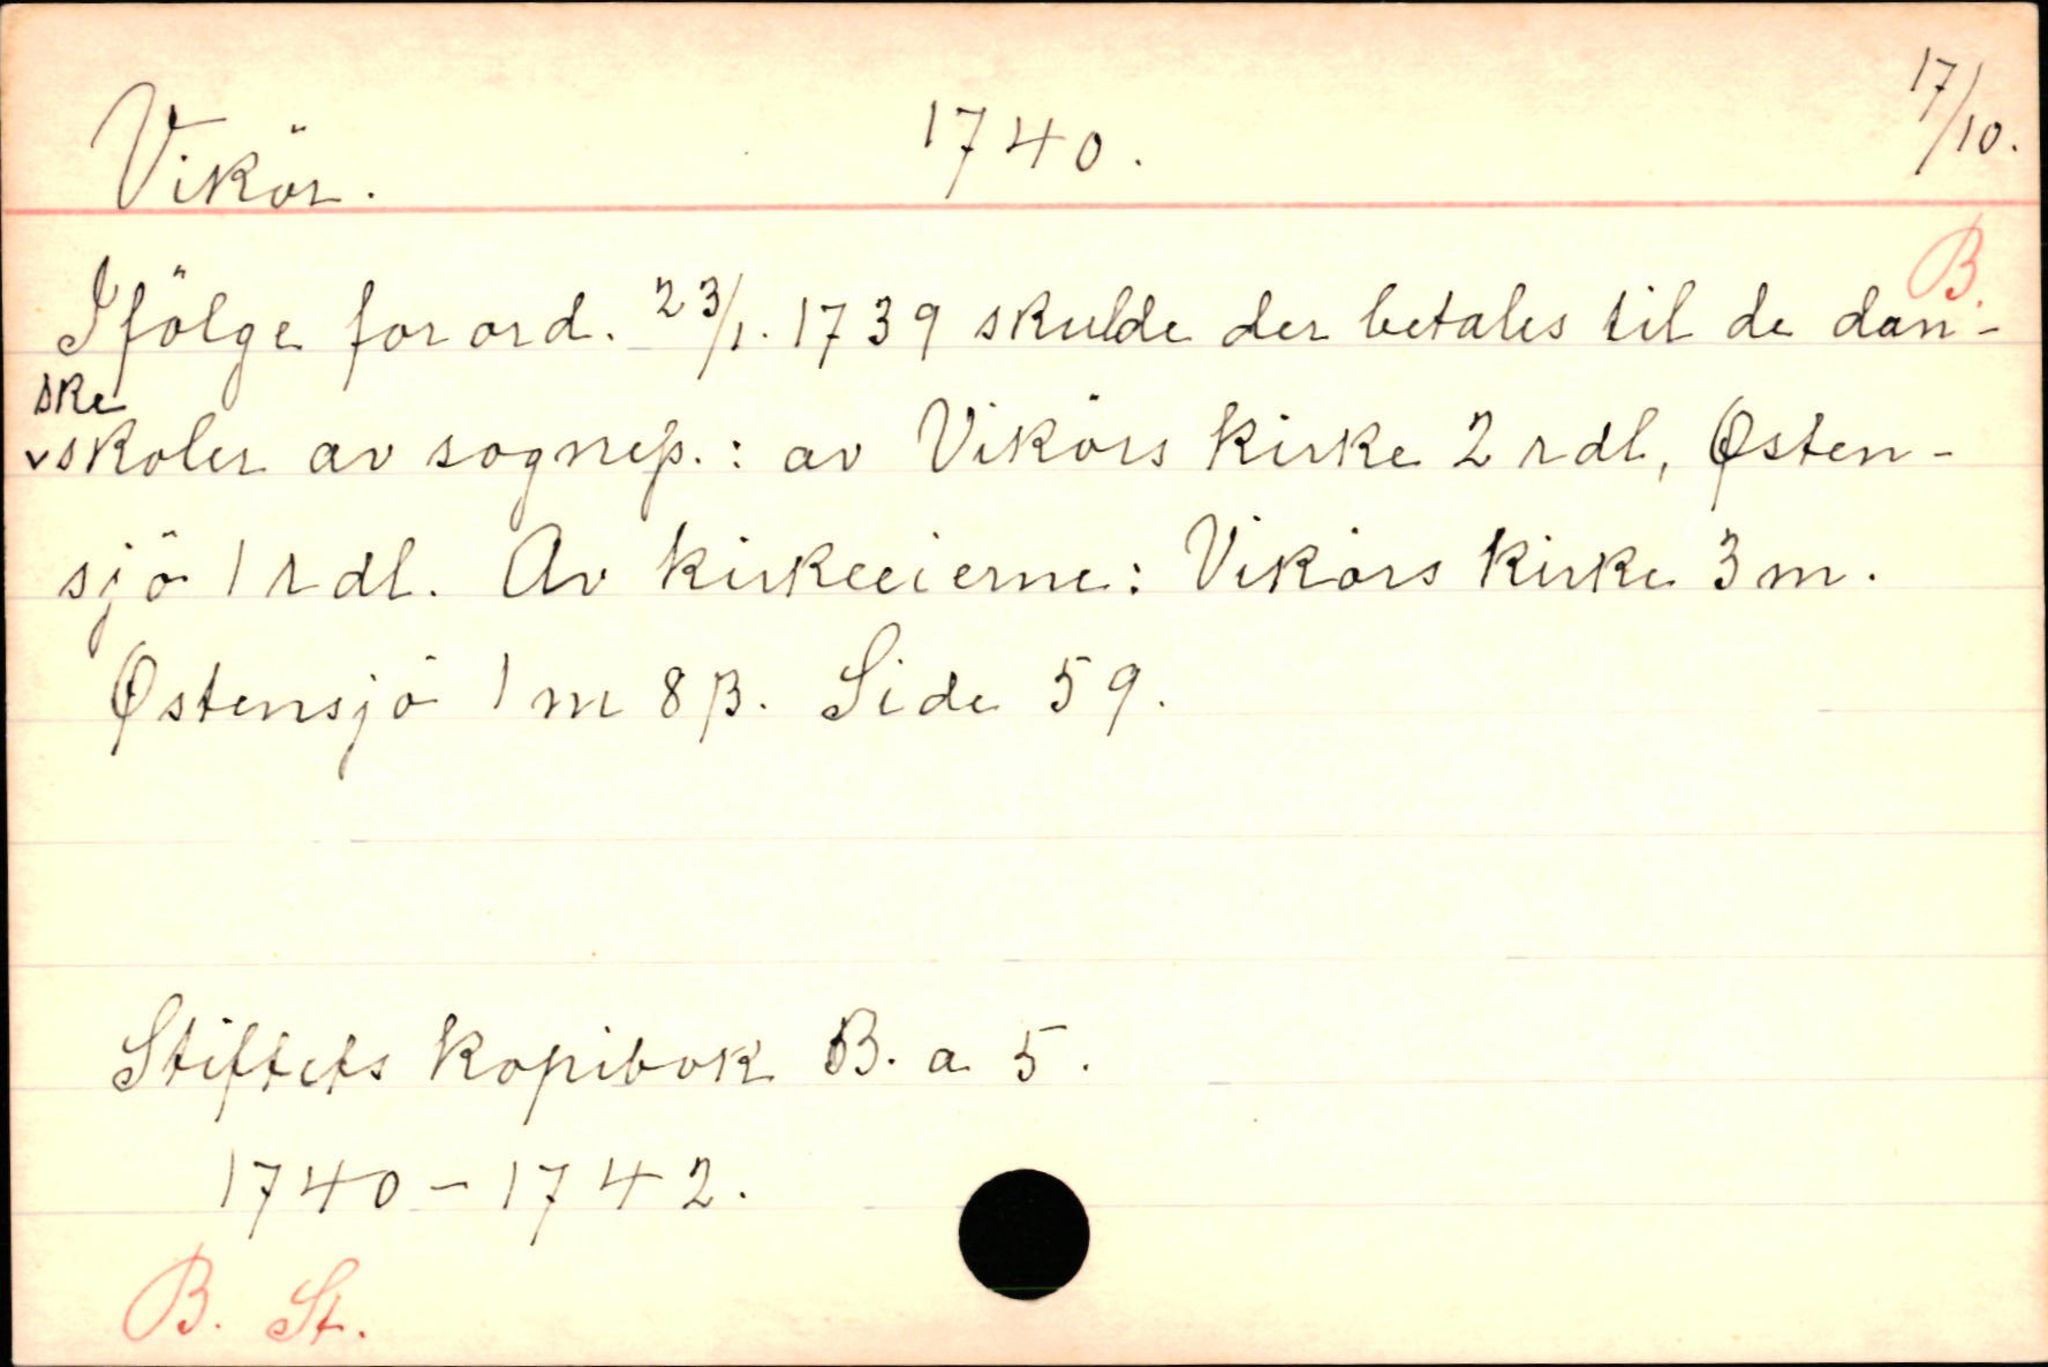 Vikör. 1740. 17/10.
B.
Ifölge forord. 23/1. 1739 skulde der betales til de dan-
ske
skoler av sognep.: av Vikörs kirke 2 rdl, Østen-
sjö 1 rdl. Av kirkeeierne: Vikörs kirke 3 m.
Østensjö 1 m 8 β. Side 59.
Stiftets kopibok B. a 5.
1740-1742.
B. St.